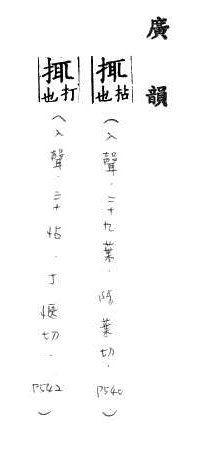 廣韻
拈也
(入聲.二十九葉.陟葉切.P540)
打也
(入聲.三十帖.丁愜切.P542)